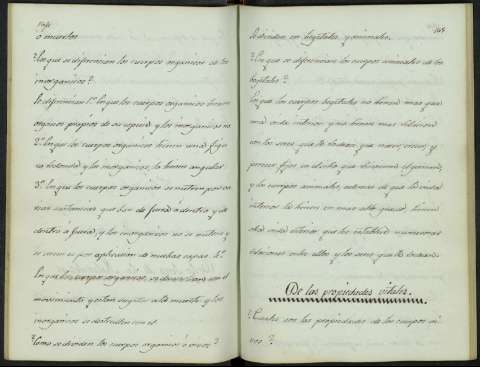 ó muertos
¿En que se diferencian los cuerpos organicos de los
inorganicos?
Se diferencian 1.º En que los cuerpos organicos tienen
organos propios de su especie y los inorganicos no
2.º En que los cuerpos organicos tienen una figu
ra redonda y los inorganicos la tienen angular
3.º En que los cuerpos organicos se nutren por va
rias sustancias que van de fuera á dentro y de
dentro á fuera, y los inorganicos no se nutren y
se crecen por aplicacion de muchas capas. 4.º
En que los cuerpos organicos, se desarrollan con el
movimiento y estan sugetos á la muerte y los
inorganicos se destrullen con el
¿Como se dividen los cuerpos organicos ó vivos?
Se dividen en begetales, y animales.
¿En que se diferencian los cuerpos animales de los
begetales?
En que los cuerpos begetales no tienen mas que
una vida interior y no tienen mas relaciones
con los seres que les rodean que nacer, crecer y
perecer fijos en el sitio que
y los cuerpos animales, ademas de que la vida
interior la tienen en mas alto grado, tienen
otra vida esterior que les establece numerosas
relaciones entre ellos y los seres que les rodean.
De las propiedades vitales.
¿Cuales son las propiedades de los cuerpos vi
vos?